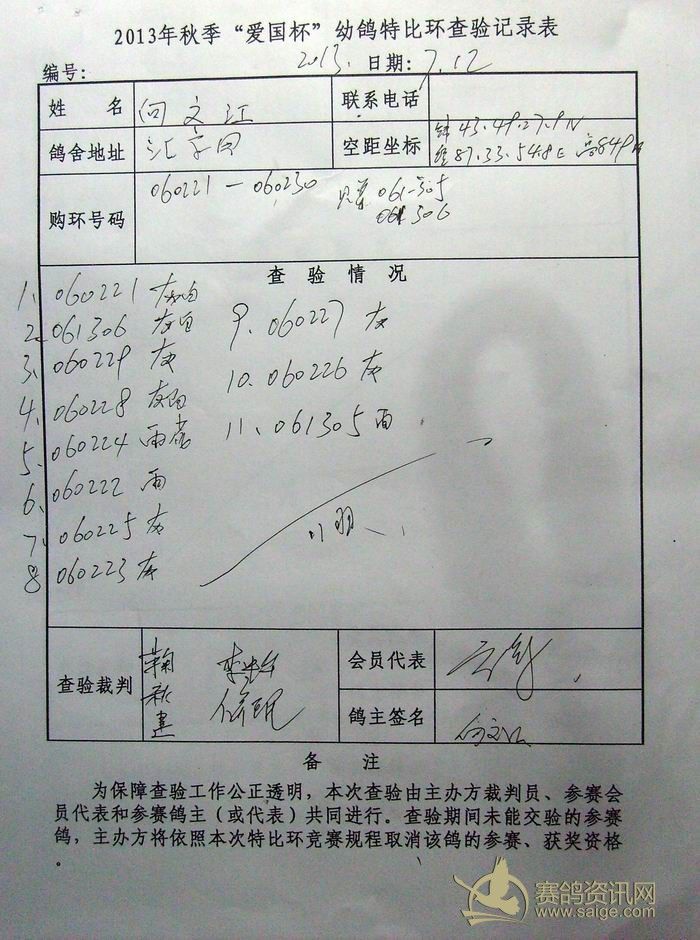 2013年秋季“爱国杯”幼鸽特比环查验记录表
编号: 2013. 日期: 7.12
姓 名 何文江 联系电话
鸽舍地址 空距坐标 43.49.27.9N
87.33.54.8E 高849
购环号码 060221-060230 061305
061306
查验情况
1. 060221 灰白
2. 061306 灰白 9. 060227 灰
3. 060229 灰 10. 060226 灰
4. 060228 灰白 11. 061305 雨
5. 060224 雨
6. 060222 雨
7. 060225 灰
8 060223 灰
11羽
查验裁判 会员代表
鸽主签名 何文江
备 注
为保障查验工作公正透明，本次查验由主办方裁判员、参赛会
员代表和参赛鸽主（或代表）共同进行。查验期间未能交验的参赛
鸽，主办方将依照本次特比环竞赛规程取消该鸽的参赛、获奖资格
。
赛鸽资讯网
www.saige.com